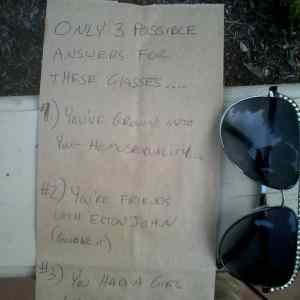 ONLY 3 POSSIBLE
ANSWERS FOR
THESE GLASSES....
#1) YOU'VE GROWN INTO
YOUR HOMOSEXUALITY...
#2) YOU'RE FRIENDS
WITH ELTON JOHN
#3) YOU HAD A GIRL